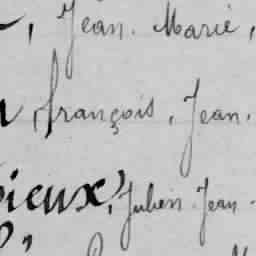 , Jean. Marie,
, françois, Jean.
ieux, Julien. Jean.